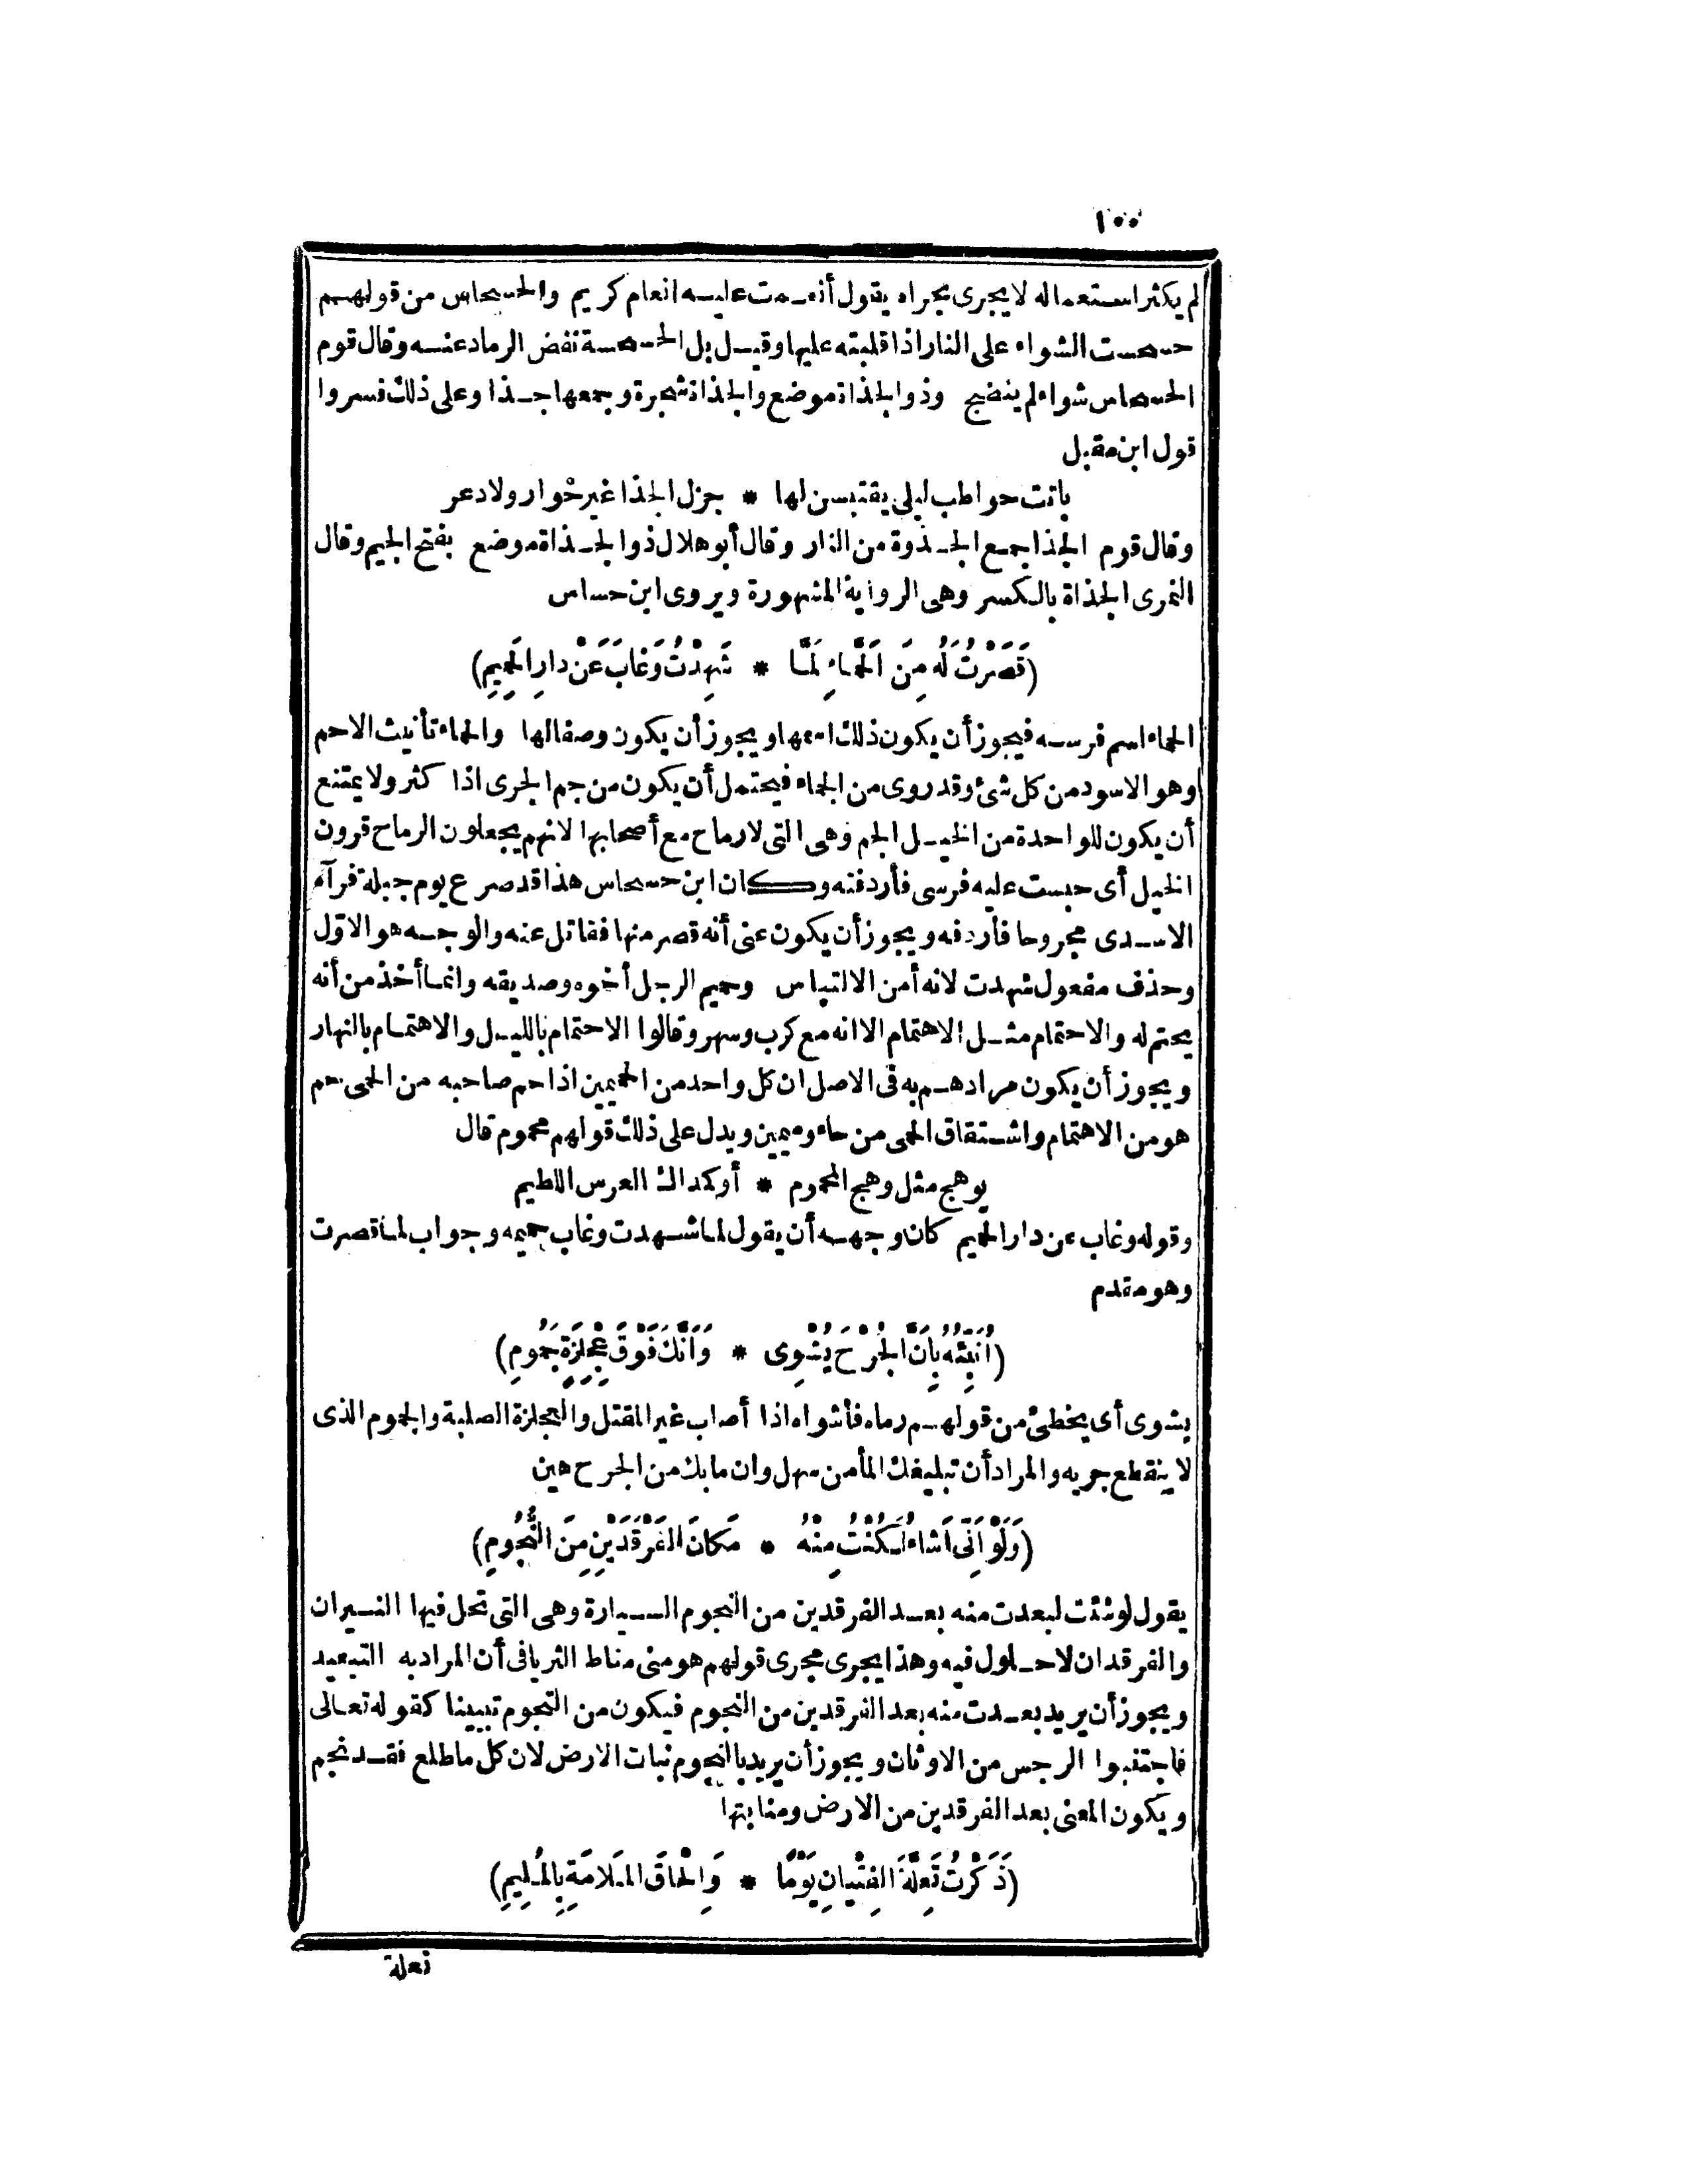 ١٠٠
لم يكثر استعماله لا يجرى مجراه يقول أنعمت عليه انعام كريم والحسحاس من قولهم
حسحست الشواء على النار اذا قلبته عليها وقيل بل الحسحسة نفض الرماد عنه وقال قوم
الحسحاس شواء لم ينضج وذو الجذاة موضع والجذاة شجرة وجمعها جذا وعلى ذلك فسروا
قول ابن مقبل
باتت حواطب ليلى يقتبسن لها * جزل الجذا غير خوار ولا دعر
وقال قوم الجذا جمع الجذوة من النار وقال أبو هلال ذو الجذاة موضع بفتح الجيم وقال
النمرى الجذاة بالكسر وهى الرواية المشهورة ويروى ابن حساس
(قَصَرْتُ لَهُ مِنَ الْحَمَّاءِ لَمَّا * شَهِدْتُ وَغَابَ عَنْ دارِ الْحَمِيمِ)
الحماء اسم فرسه فيجوز أن يكون ذلك اسمها ويجوز أن يكون وصفا لها والحماء تأنيث الاحم
وهو الاسود من كل شئ وقد روى من الجماء فيحتمل أن يكون من جم الجرى اذا كثر ولا يمتنع
أن يكون للواحدة من الخيل الجم وهى التى لا رماح مع أصحابها لانهم يجعلون الرماح قرون
الخيل أى حبست عليه فرسى فأردفته وكان ابن حسحاس هذا قد صرع يوم جبلة فرآه
الاسدى مجروحا فأردفه ويجوز أن يكون عنى أنه قصر منها فقاتل عنه والوجه هو الاوّل
وحذف مفعول شهدت لانه أمن الالتباس وحميم الرجل أخوه وصديقه وانما أخذ من أنه
يحتم له والاحتمام مثل الاهتمام الا انه مع كرب وسهر وقالوا الاحتمام بالليل والاهتمام بالنهار
ويجوز أن يكون مرادهم به فى الاصل ان كل واحد من الحميمين اذا حم صاحبه من الحمى حم
هو من الاهتمام واشتقاق الحمى من حاء وميمين ويدل على ذلك قولهم محموم قال
يوهج مثل وهج المحموم * أوكمداك العرس اللطيم
وقوله وغاب عن دار الحميم كان وجهه أن يقول لما شهدت وغاب حميمه وجواب لما قصرت
وهو مقدم
(أُنَبِّئُهُ بِأَنَّ الْجُرْحَ يُشْوِى * وَأَنَّكَ فَوْقَ عِجْلِزَةٍ جَمُومِ)
يشوى أى يخطئ من قولهم رماه فأشواه اذا أصاب غير المقتل والعجلزة الصلبة والجموم الذى
لا ينقطع جريه والمراد أن تبليغك المأمن سهل وان ما بك من الجرح هين
(وَلَوْ أَنِّى أَشاءُ لَكُنْتُ مِنْهُ * مَكانَ الفَرْقَدَيْنِ مِنَ النُّجُومِ)
يقول لو شئت لبعدت منه بعد الفرقدين من النجوم السيارة وهى التى تحل فيها النسيران
والفرقدان لا حلول فيه وهذا يجرى مجرى قولهم هو منى مناط الثريا فى أن المراد به التبعيد
ويجوز أن يريد بعدت منه بعد الفرقدين من النجوم فيكون من النجوم تبيينا كقوله تعالى
فاجتنبوا الرجس من الاوثان ويجوز أن يريد بالنجوم نبات الارض لان كل ما طلع فقد نجم
ويكون المعنى بعد الفرقدين من الارض ومنابتها
(ذَكَرْتُ تَعِلَّةَ الفِتْيانِ يَوْمًا * وَإِلْحاقَ المَلامَةِ بِالمُلِيمِ)
تعلة